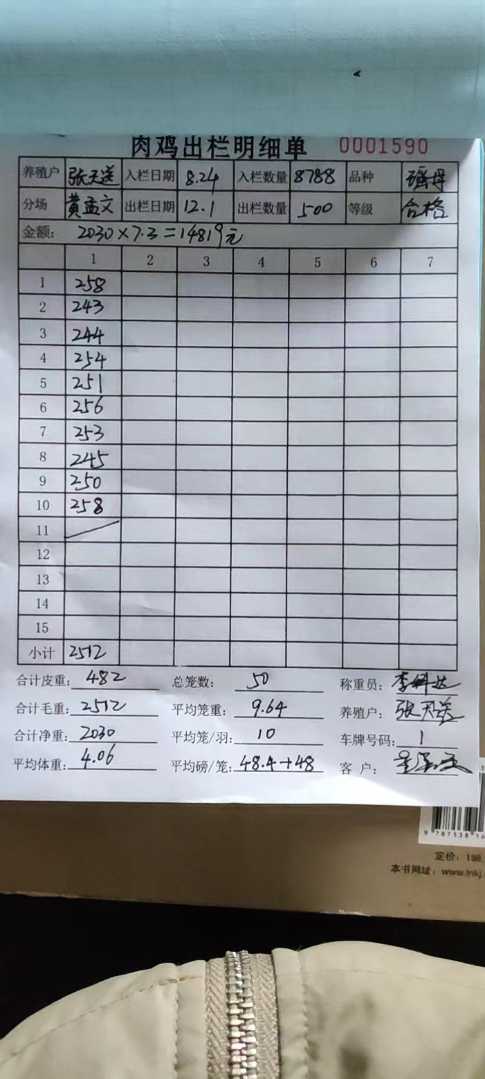 肉鸡出栏明细单 0001590
养殖户 张天送 入栏日期 8.24 入栏数量 8788 品种
分场 黄孟文 出栏日期 12.1 出栏数量 500 等级 合格
金额: 2030×7.3=14819元
1 2 3 4 5 6 7
1 258
2 243
3 244
4 254
5 251
6 256
7 253
8 245
9 250
10 258
11
12
13
14
15
小计 2512
合计皮重: 482 总笼数: 50 称重员:
合计毛重: 2512 平均笼重: 9.64 养殖户: 张天送
合计净重: 2030 平均笼/羽: 10 车牌号码: 1
平均体重: 4.06 平均磅/笼: 48.4+48 客户:
定价: 198
本书网址: www.lnkj